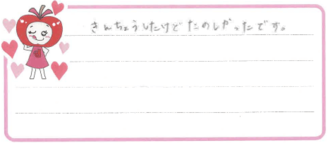 きんちょうしたけど たのしかったです。